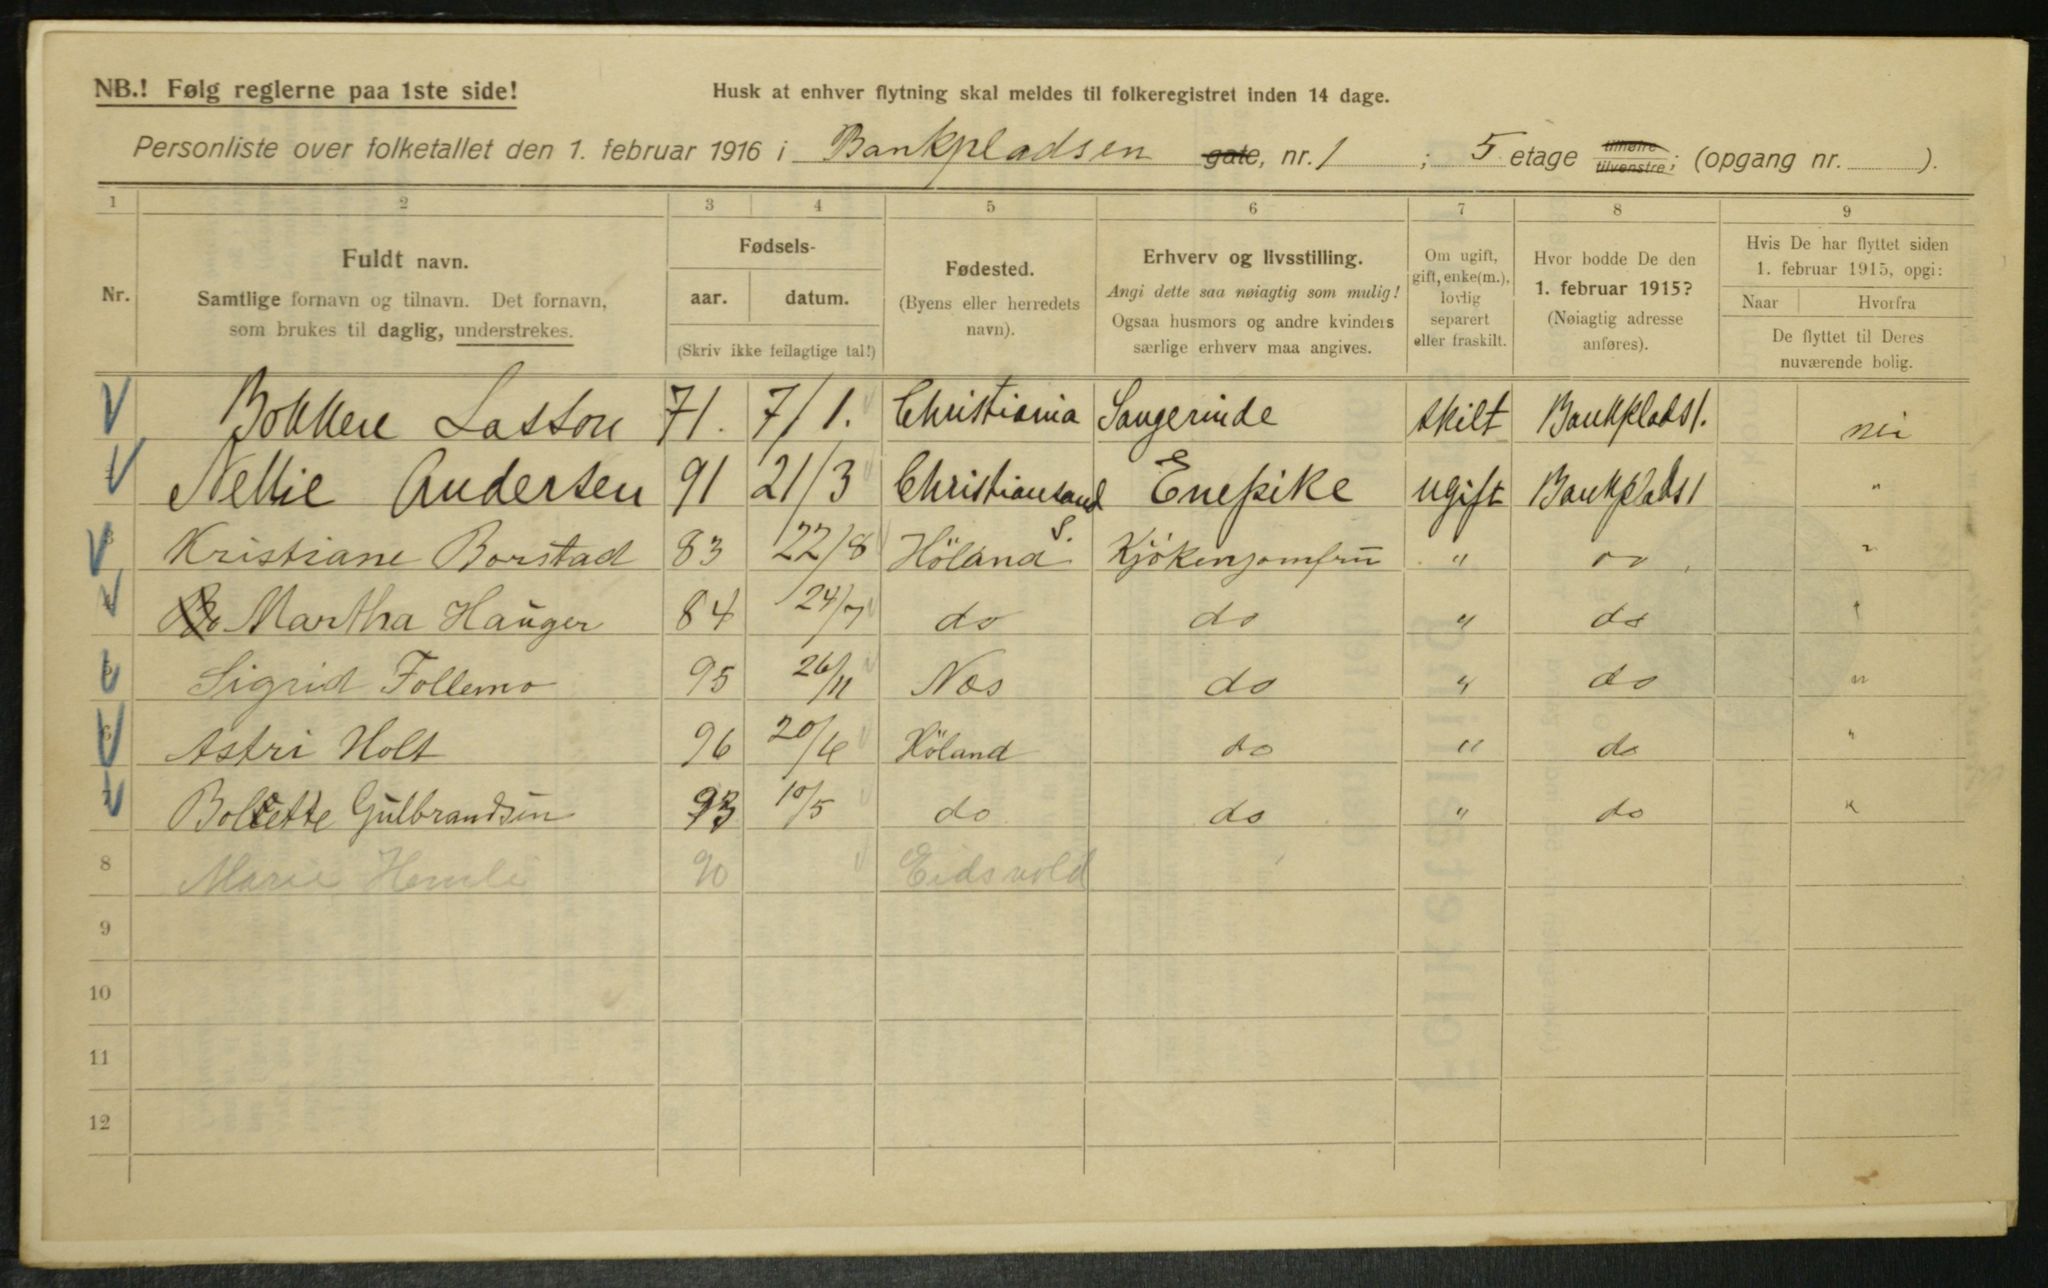 NB.! Følg reglerne paa 1ste side!
Husk at enhver flytning skal meldes til folkeregistret inden 14 dage.
Personliste over folketallet den 1. februar 1916 i Bankpladsen gate, nr. 1 ; 5. etage tilhøire tilvenstre; (opgang nr. ).
1 2 3 4 5 6 7 8 9
Nr.
Fuldt navn.
Samtlige fornavn og tilnavn. Det fornavn,
som brukes til daglig, understrekes.
Fødsels-
aar. datum.
(Skriv ikke feilagtige tal!)
Fødested.
(Byens eller herredets
navn).
Erhverv og livsstilling.
Angi dette saa nøiagtig som mulig!
Ogsaa husmors og andre kvinders
særlige erhverv maa angives.
Om ugift,
gift, enke(m.),
lovlig
separert
eller fraskilt.
Hvor bodde De den
1. februar 1915?
(Nøiagtig adresse
anføres).
Hvis De har flyttet siden
1. februar 1915, opgi:
Naar Hvorfra
De flyttet til Deres
nuværende bolig.
Bokken Lasson 71. 7/1. Christiania Sangerinde skilt Bankplads 1. nei
Nellie Andersen 91 21/3 Christiansand S. Enepike ugift Bankplads 1 "
3 Kristiane Borstad 83 22/8 Höland Kjökenjomfru " do "
Martha Hauger 84 24/7 do do " do "
5 Sigrid Follemo 95 26/11 Nes do " do "
6 Astri Holt 96 20/6 Höland do " do "
7 Bollette Gulbrandsen 93 10/5 do do " do "
8 Marie Hemli 90 Eidsvold
9
10
11
12